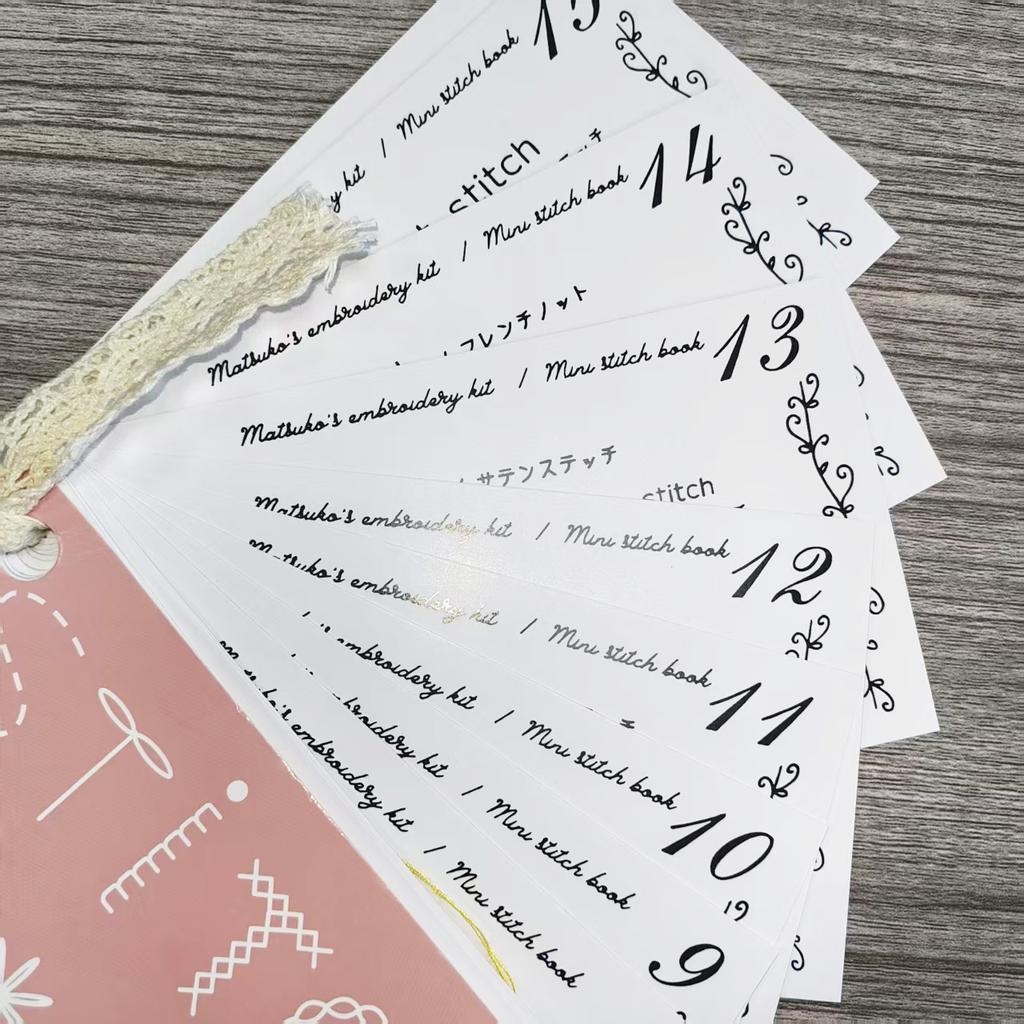 Mini stitch book 15
stitch
Matsuko's embroidery kit / Mini stitch book 14
フレンチノット
Matsuko's embroidery kit / Mini stitch book 13
サテンステッチ
stitch
Matsuko's embroidery kit / Mini stitch book 12
Matsuko's embroidery kit / Mini stitch book 11
embroidery kit / Mini stitch book 10
kit / Mini stitch book 9
embroidery kit / Mini stitch book